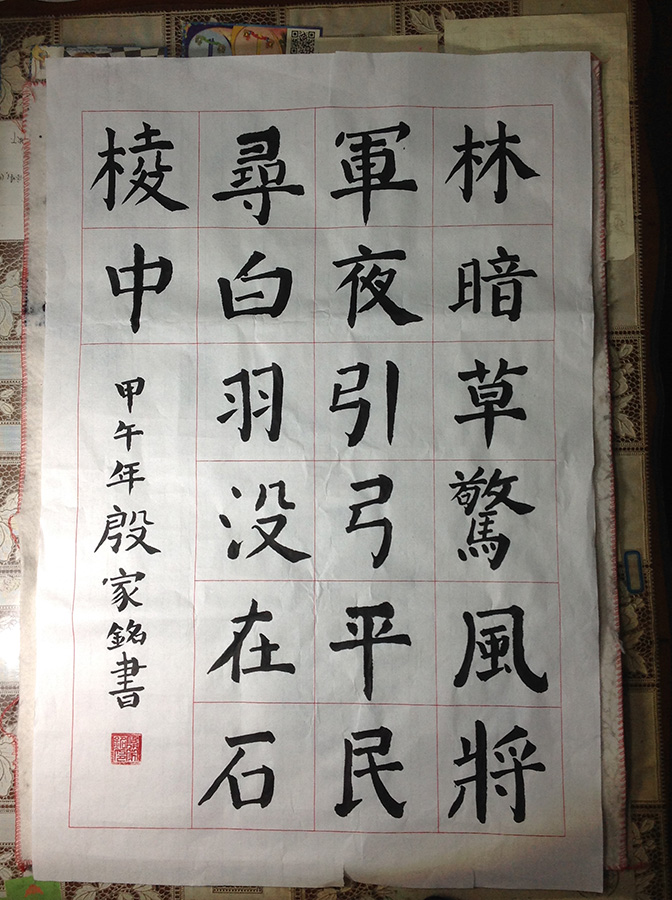 林暗草驚風將
軍夜引弓平民
尋白羽没在石
棱中
甲午年殷家銘書